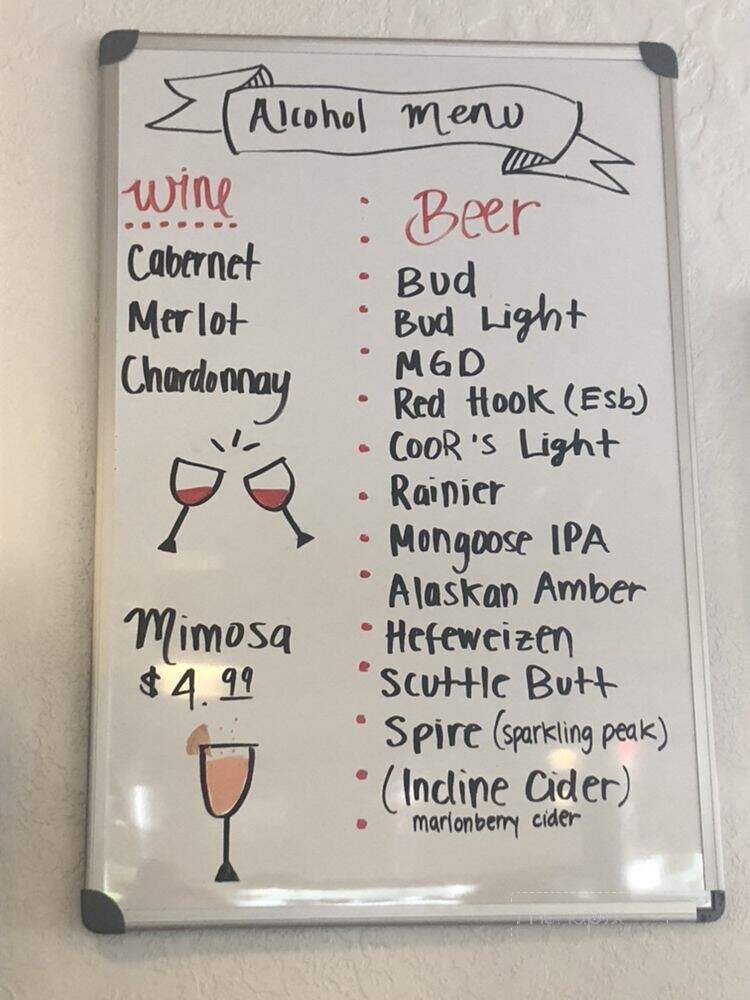 Alcohol menu
Wine
Cabernet
Merlot
Chardonnay
Mimosa
$4.99
Beer
Bud
Bud Light
MGD
Red Hook (Esb)
COOR'S Light
Rainier
Mongoose IPA
Alaskan Amber
Hefeweizen
Scuttle Butt
Spire (sparkling peak)
(Incline Cider)
marionberry cider